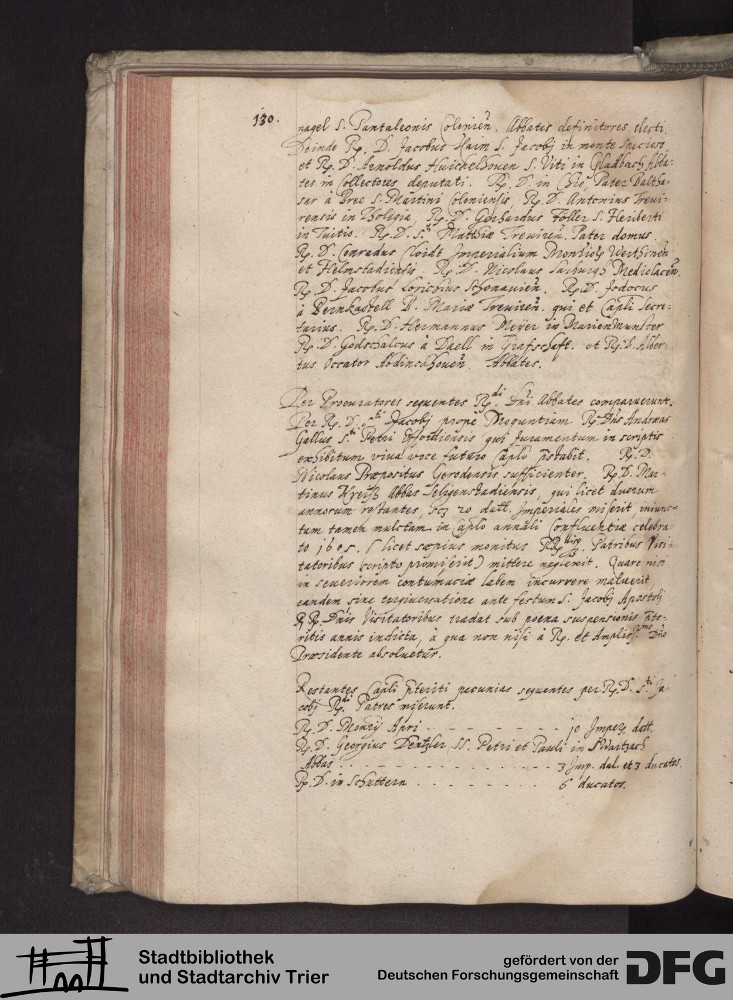 130.
nagel S. Pantaleonis Colonień. Abbates definitores electi.
Deinde Rp. D. Jacobus Haim S. Jacobj in monte specioso
et Rp. D. Arnoldus Huichelhouen S. Viti in Gladbach Abba-
tes in Collectores deputati. Rp. D. in Chro Pater Baltha-
sar à Pree S. Martini Coloniensis. Rp. D. Antonius Trevi-
rensis in Tholegia. Rp. D. Gerhardus Föller S. Heriberti
in Tuitio. Rp. D. S.ti Matthiæ Treuireń. Pater domus.
Rp. D. Conradus Cloidt Imperialium Mon̄riorū Werthineń
et Helmstadiensis. Rp. D. Nicolaus Sarburgs Mediolaceń.
Rp. D. Jacobus Lorichius Schonauień. Rp. D. Jodocus
à Bernkastell B. Mariæ Treuireń. qui et Capli Secre-
tarius. Rp. D. Hermannus Meÿer in Marienmunster
Rp. D. Godschalcus à Daell in Grafschafft. et Rp. D. Alber-
tus Occator Abdinckhoueń. Abbates.
Per Procuratores sequentes Rp.di Dn̄i Abbates comparuerunt.
Per Rp. D. S.ti Jacobj prope Moguntiam Rp. Dn̄s Andreas
Gallus S.ti Petri Erfordiensis qui Juramentum in scriptis
exhibitum viua voce futuro Caplo p̄stabit. Rp. D.
Nicolaus Præpositus Gerodensis sufficienter. Rp. D. Mar-
tinus Kreiß Abbas Seligenstadiensis, qui licet duorum
annorum restantes, scz 20 dall. Imperiales miserit, iniunc-
tam tamen mulctam in Caplo annali Confluentiæ celebra-
to 1605. (licet sæpius monitus RRdisq Patribus Visi-
tatoribus scripto promiserit) mittere neglexit. Quare nisi
in seueriorem contumaciæ labem incurrere maluerit
eandem sine tergiuersatione ante festum S. Jacobj Apostoli
RR. Dn̄is Visitatoribus tradat sub poena suspensionis p̄te-
ritis annis indicta, à qua non nisi à Rp. et Ampliss.mo Dn̄o
Præsidente absoluetur.
Restantes Capli p̄teriti pecunias sequentes per Rp. D. S.ti Ja-
cobj Rp.di Patres miserunt.
Rp. D. Montis Apri - - - - - - - 10 Imper. dall.
Rp. D. Georgius Dentzler SS. Petri et Pauli in Schwartzach
Abbas . . . . . . . . . . . . . . . 3 Imp. dal. et 3 ducatos.
Rp. D. in Schuttern - - - - - - - 6 ducatos.
Stadtbibliothek
und Stadtarchiv Trier
gefördert von der
Deutschen Forschungsgemeinschaft
DFG